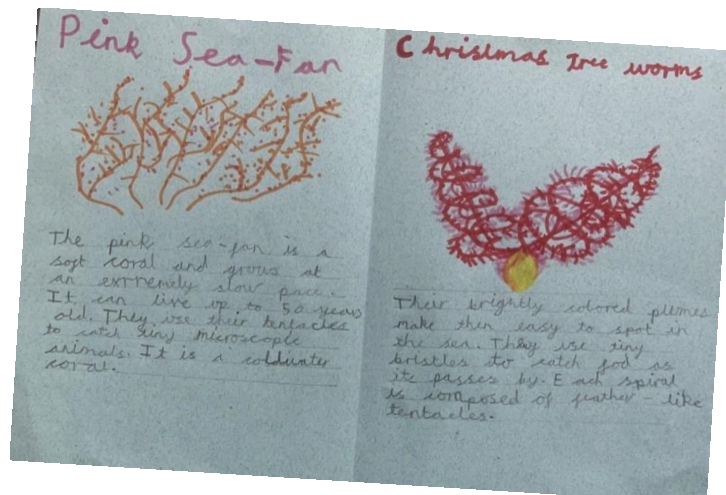 Pink Sea-Fan
The pink sea-fan is a
soft coral and grows at
an exrtremely slow pace.
It can live up to 50 years
old. They use their tentacles
to catch tiny microscopic
animals. It is a coldwater
coral.
Christmas Tree worms
Their brightly colored plumes
make then easy to spot in
the sea. They use tiny
bristles to catch fod as
its passes by. Each spiral
is composed of feather-like
tentacles.